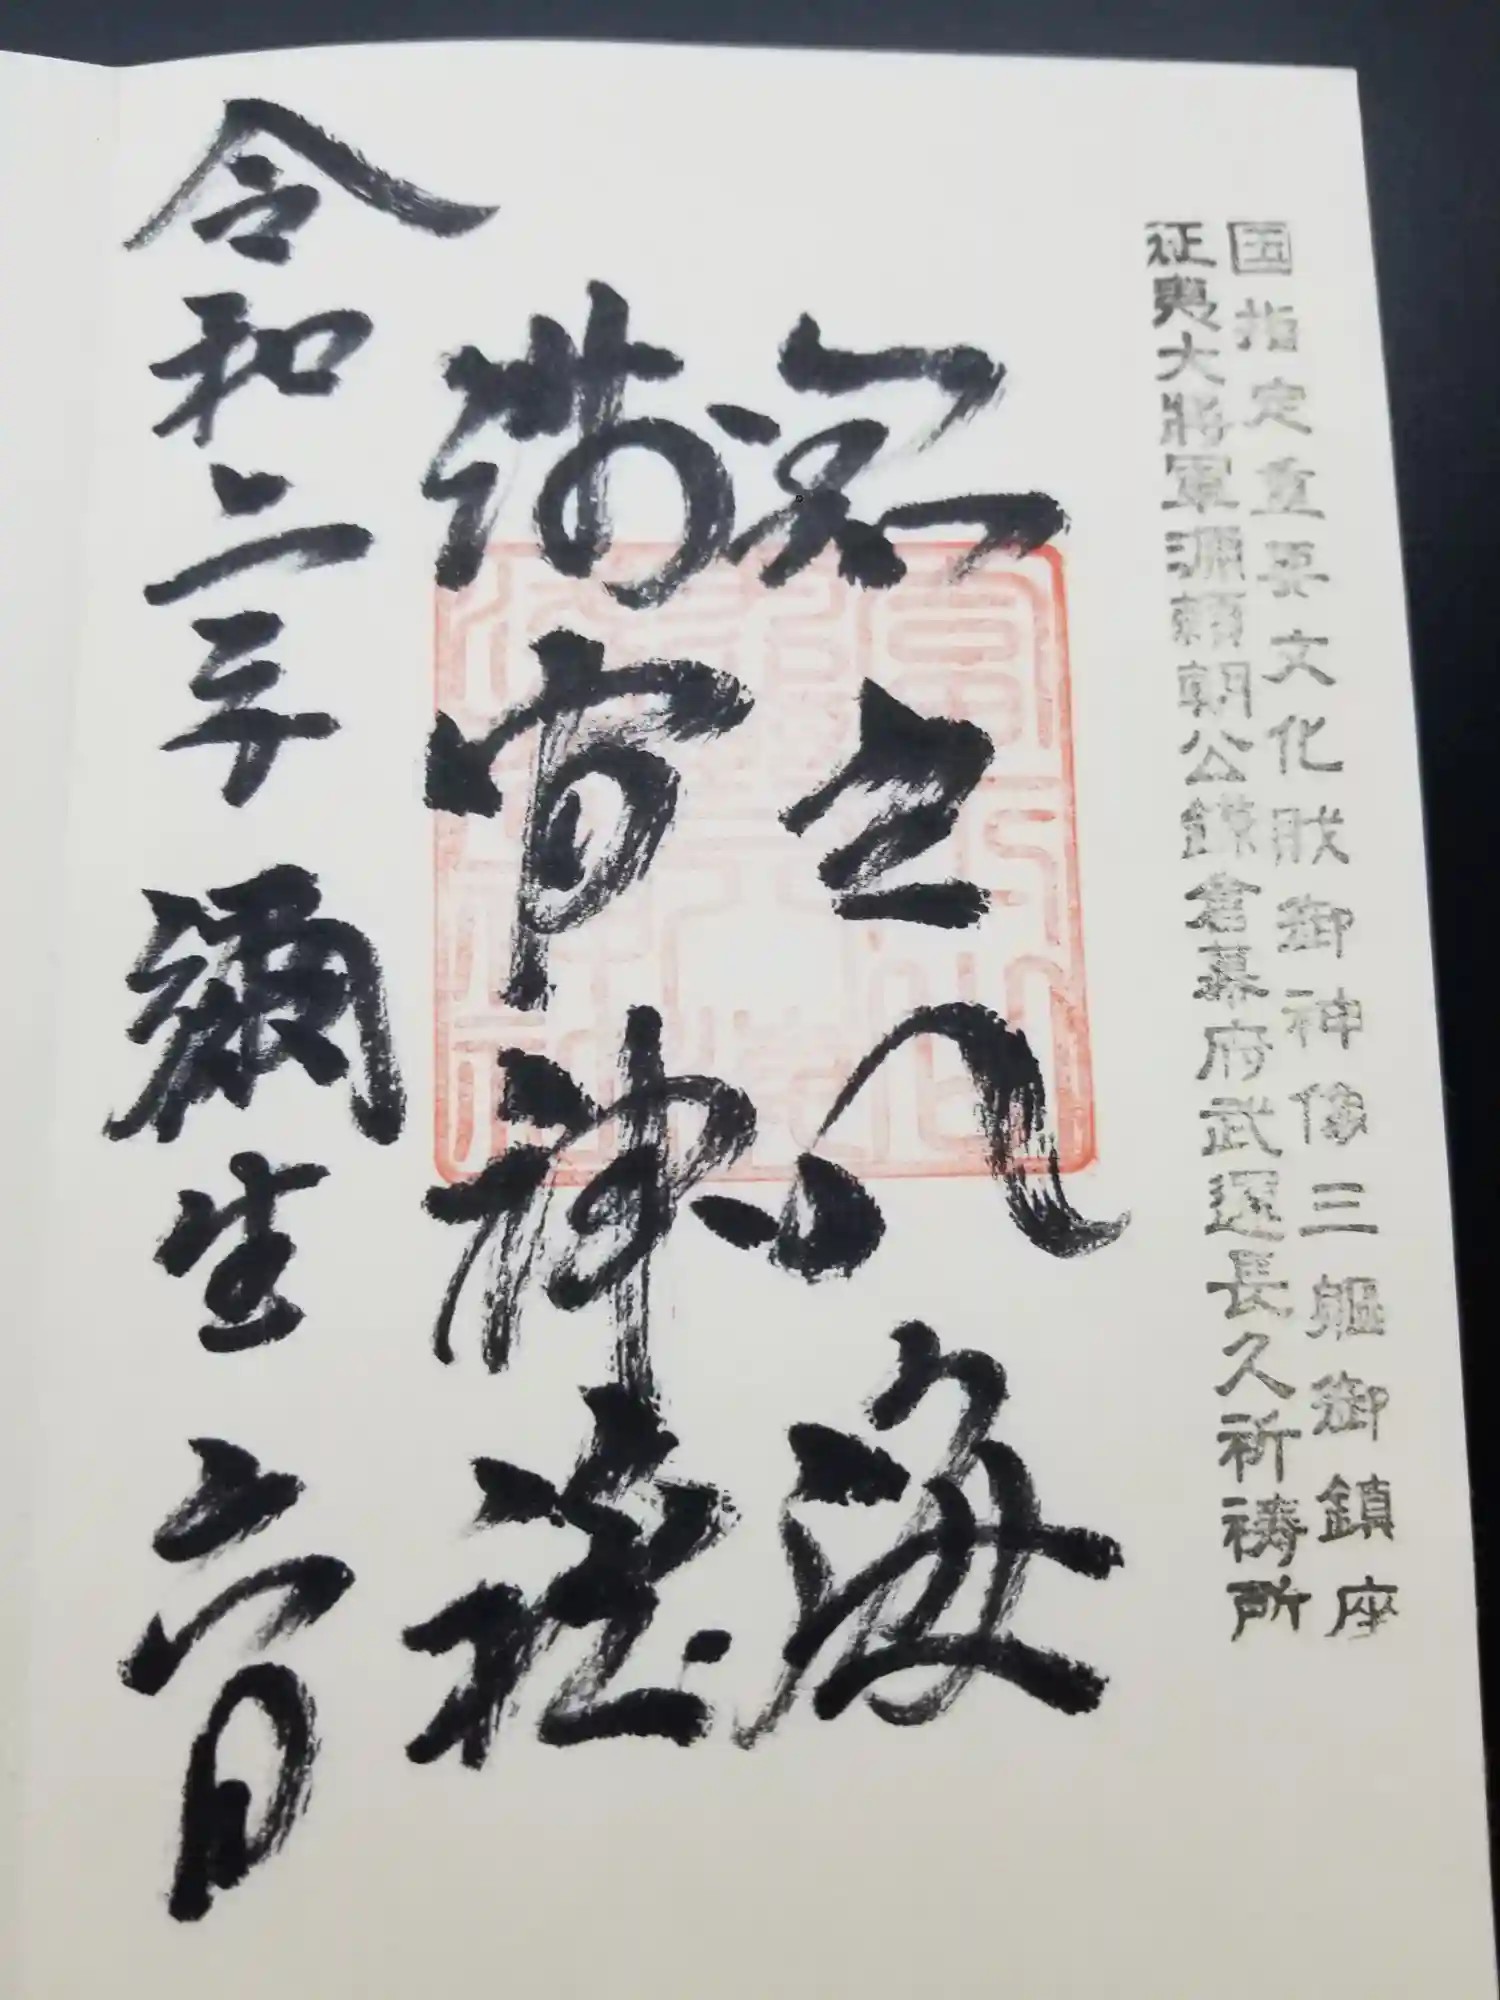 国指定重要文化財御神像三躯御鎮座
征夷大将軍源頼朝公鎌倉幕府武運長久祈祷所
忍之八海
浅間神社
令和二年彌生六日